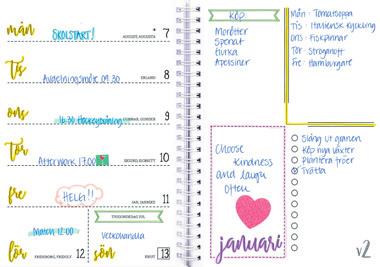 mån
SKOLSTART!
AUGUST, AUGUSTA
7
tis
Avdelningsmöte 09.30
ERLAND
8
ons
16.30 Hockeyträning
GUNNAR, GUNDER
9
tor
Afterwork 17.00
SIGURD, SIGBRITT
10
fre
HELG!!
JAN, JANNIKE
11
Match 12:00
lör
FRIDEBORG, FRIDOLF
12
TJUGONDEDAG JUL
Veckohandla
sön
KNUT
13
Köp
Morötter
Spenat
Gurka
Apelsiner
Mån: Tomatsoppa
Tis: Italiensk kyckling
Ons: Fiskpinnar
Tor: Stroganoff
Fre: Hamburgare
Choose
kindness
and laugh
often
januari
Släng ut granen
Köp nya växter
Plantera fröer
Tvätta
v2